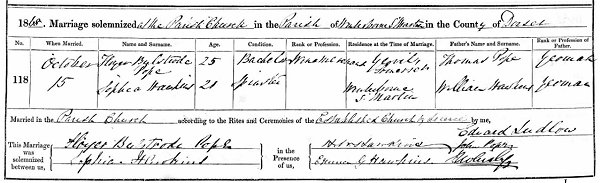 18 Marriage solemnized at the Parish Church in the Parish of Winterborne S. Martin in the County of Dorset
No. When Married. Name and Surname. Age Condition. Rank or Profession. Residence at the Time of Marriage. Father's Name and Surname. Rank or Profession of Father.
118 October 15 Pope 25 Bachelor Somerset Thomas Pope Yeoman
Sophia Hawkins 21 Spinster Winterborne S. Martin William Hawkins Yeoman
Married in the Parish Church according to the Rites and Ceremonies of the Established Church by me,
Edward Ludlow
This Marriage was solemnized between us, Pope
Sophia Hawkins
in the Presence of us, Hawkins John Pope
Emma G Hawkins